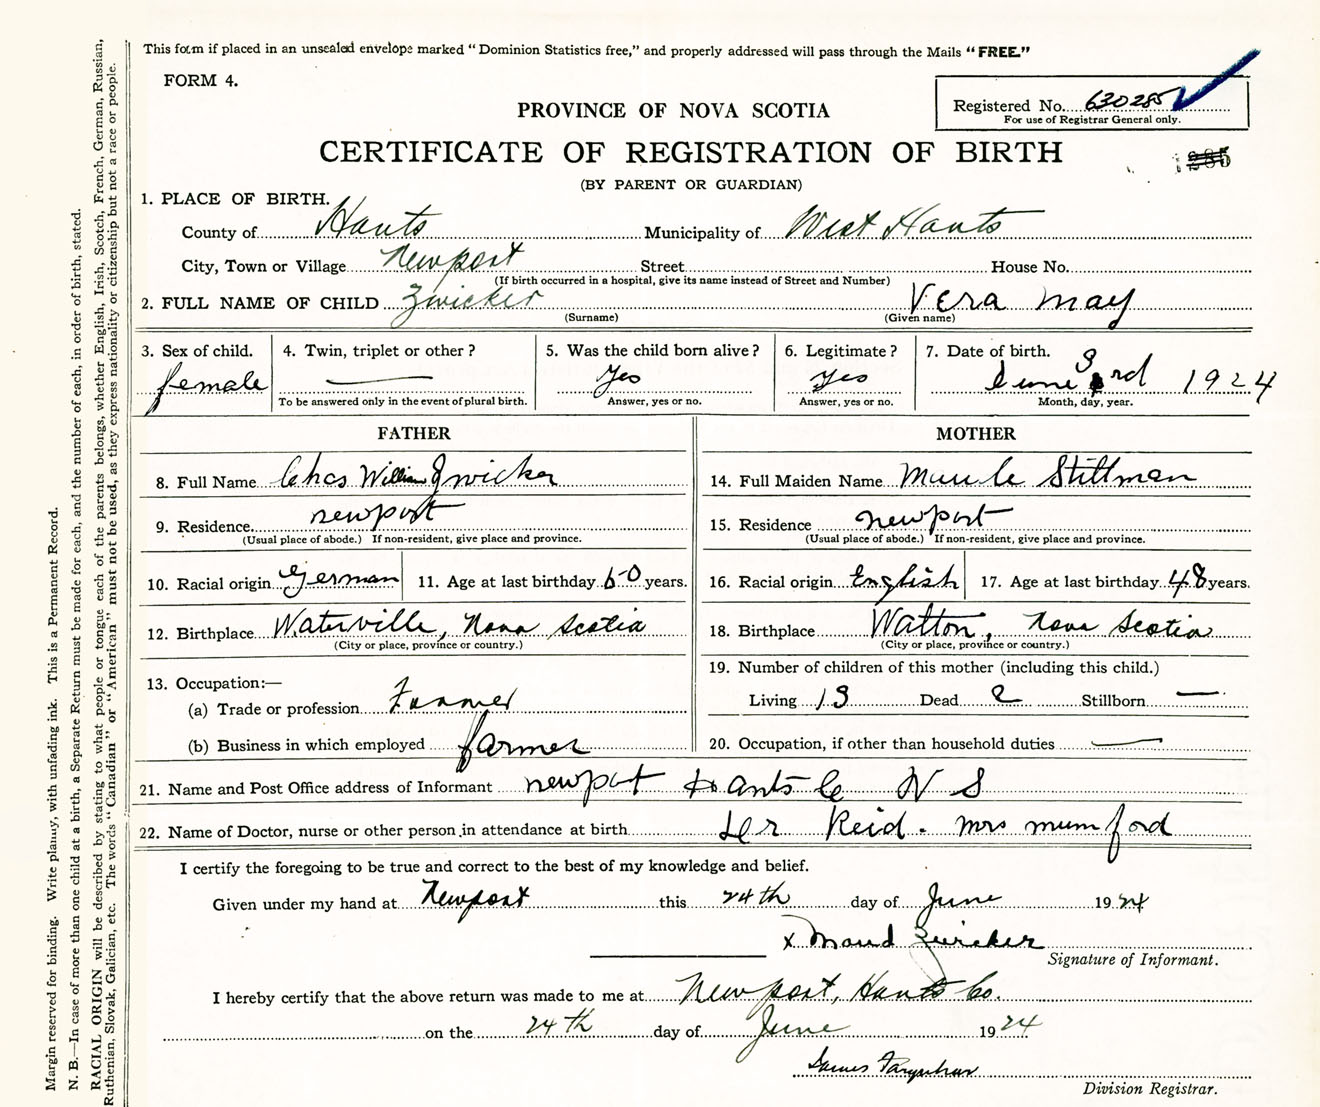 This form if placed in an unsealed envelope marked "Dominion Statistics free," and properly addressed will pass through the Mails "FREE."
FORM 4.
Registered No. 630285
For use of Registrar General only.
PROVINCE OF NOVA SCOTIA
CERTIFICATE OF REGISTRATION OF BIRTH
1285
(BY PARENT OR GUARDIAN)
1. PLACE OF BIRTH.
County of Hants Municipality of West Hants
City, Town or Village Newport Street House No.
(If birth occurred in a hospital, give its name instead of Street and Number)
2. FULL NAME OF CHILD Zwicker Vera May
(Surname) (Given name)
3. Sex of child. 4. Twin, triplet or other? 5. Was the child born alive? 6. Legitimate? 7. Date of birth.
female — Yes Yes June 3rd 1924
To be answered only in the event of plural birth. Answer, yes or no. Answer, yes or no. Month, day, year.
FATHER MOTHER
8. Full Name Chas William Zwicker 14. Full Maiden Name Maude Stillman
9. Residence. newport 15. Residence newport
(Usual place of abode.) If non-resident, give place and province. (Usual place of abode.) If non-resident, give place and province.
10. Racial origin German 11. Age at last birthday 60 years. 16. Racial origin English 17. Age at last birthday 48 years.
12. Birthplace Waterville, Nova Scotia 18. Birthplace Walton, Nova Scotia
(City or place, province or country.) (City or place, province or country.)
13. Occupation:— 19. Number of children of this mother (including this child.)
(a) Trade or profession Farmer Living 13 Dead 2 Stillborn —
(b) Business in which employed farmer 20. Occupation, if other than household duties —
21. Name and Post Office address of Informant newport Hants Co N S
22. Name of Doctor, nurse or other person in attendance at birth Dr Reid. Mrs mumford
I certify the foregoing to be true and correct to the best of my knowledge and belief.
Given under my hand at Newport this 24th day of June 1924
x Maud Zwicker
Signature of Informant.
I hereby certify that the above return was made to me at Newport, Hants Co.
on the 24th day of June 1924
James Farquhar
Division Registrar.
Margin reserved for binding. Write plainly, with unfading ink. This is a Permanent Record.
N. B.—In case of more than one child at a birth, a Separate Return must be made for each, and the number of each, in order of birth, stated.
RACIAL ORIGIN will be described by stating to what people or tongue each of the parents belongs, whether English, Irish, Scotch, French, German, Russian,
Ruthenian, Slovak, Galician, etc. The words "Canadian" or "American" must not be used, as they express nationality or citizenship but not a race or people.